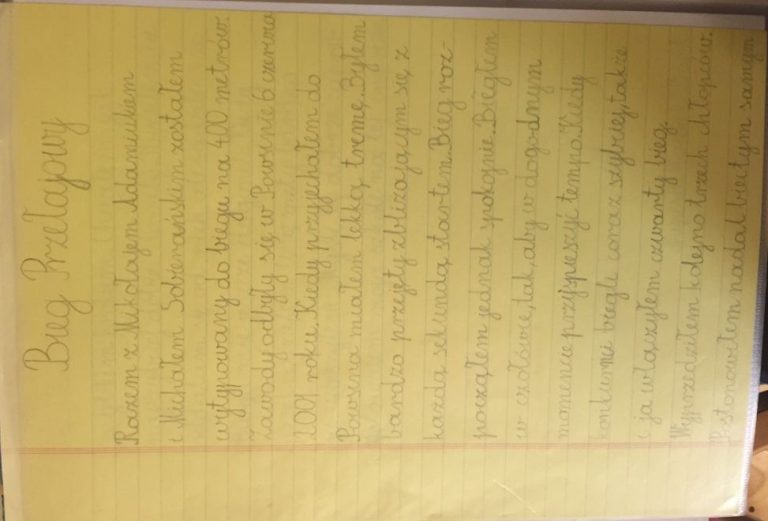 Bieg Przełajowy
Razem z Mikołajem Adamiukiem
i Michałem Sobierańskim zostałem
wytypowany do biegu na 400 metrów.
Zawody odbyły się w Powsinie 6 czerwca
2001 roku. Kiedy przyjechałem do
Powsina miałem lekką tremę. Byłem
bardzo przejęty zbliżającym się z
każdą sekundą startem. Bieg roz-
począłem jednak spokojnie. Biegłem
w czołówce, tak, aby w dogodnym
momencie przyśpieszyć tempo. Kiedy
konkurenci biegli coraz szybciej, także
i ja włączyłem czwarty bieg.
Wyprzedziłem kolejno trzech chłopców.
Postanowiłem nadal biec tym samym